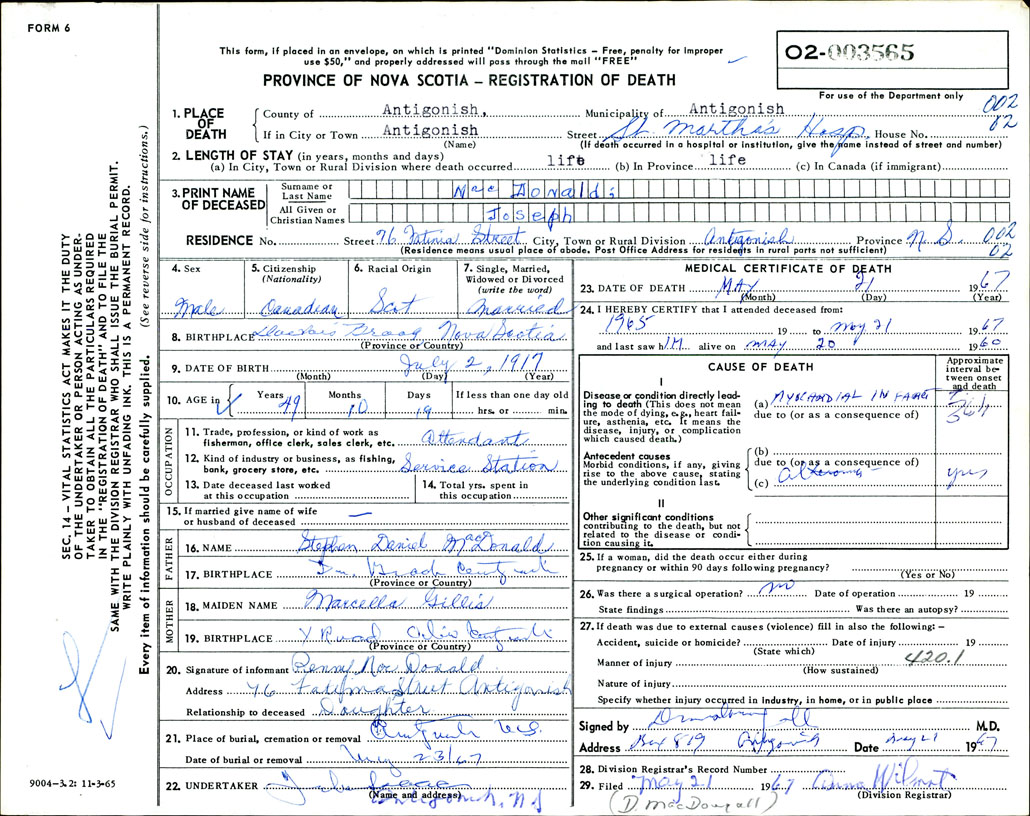 FORM 6
This form, if placed in an envelope, on which is printed "Dominion Statistics — Free, penalty for improper
use $50," and properly addressed will pass through the mail "FREE"
O2-003565
For use of the Department only
PROVINCE OF NOVA SCOTIA — REGISTRATION OF DEATH
002
02
1. PLACE OF DEATH
County of Antigonish, Municipality of Antigonish
If in City or Town Antigonish Street St. Martha's Hosp. House No.
(Name) (If death occurred in a hospital or institution, give the name instead of street and number)
2. LENGTH OF STAY (in years, months and days)
(a) In City, Town or Rural Division where death occurred life (b) In Province life (c) In Canada (if immigrant)
3. PRINT NAME OF DECEASED
Surname or Last Name MacDonald;
All Given or Christian Names Joseph
RESIDENCE No. Street 76 Fatima Street City, Town or Rural Division Antigonish Province N.S. 002
(Residence means usual place of abode. Post Office Address for residents in rural parts not sufficient) 02
4. Sex
Male
5. Citizenship (Nationality)
Canadian
6. Racial Origin
Scot
7. Single, Married, Widowed or Divorced (write the word)
Married
8. BIRTHPLACE Nova Scotia
(Province or Country)
9. DATE OF BIRTH July 2, 1917
(Month) (Day) (Year)
10. AGE in Years 49 Months 10 Days 19 If less than one day old hrs. or min.
OCCUPATION
11. Trade, profession, or kind of work as fisherman, office clerk, sales clerk, etc. Attendant
12. Kind of industry or business, as fishing, bank, grocery store, etc. Service Station
13. Date deceased last worked at this occupation
14. Total yrs. spent in this occupation
15. If married give name of wife or husband of deceased —
FATHER
16. NAME Stephen Daniel MacDonald
17. BIRTHPLACE
(Province or Country)
MOTHER
18. MAIDEN NAME Marcella Gillis
19. BIRTHPLACE
(Province or Country)
20. Signature of informant Penny MacDonald
Address 76 Fatima Street Antigonish
Relationship to deceased Daughter
21. Place of burial, cremation or removal Antigonish N.S.
Date of burial or removal May 23/67
22. UNDERTAKER
(Name and address) Antigonish, N S
MEDICAL CERTIFICATE OF DEATH
23. DATE OF DEATH MAY 21 1967
(Month) (Day) (Year)
24. I HEREBY CERTIFY that I attended deceased from:
1965 19 to May 21 1967
and last saw him alive on May 20 1960
CAUSE OF DEATH
Approximate interval between onset and death
I
Disease or condition directly leading to death (This does not mean the mode of dying, e.g., heart failure, asthenia, etc. It means the disease, injury, or complication which caused death.)
(a) MYOCARDIAL INFARCT
due to (or as a consequence of)
Antecedent causes
Morbid conditions, if any, giving rise to the above cause, stating the underlying condition last.
(b)
due to (or as a consequence of)
(c) Atheroma yrs
II
Other significant conditions contributing to the death, but not related to the disease or condition causing it.
25. If a woman, did the death occur either during pregnancy or within 90 days following pregnancy?
(Yes or No)
26. Was there a surgical operation? no Date of operation 19
State findings Was there an autopsy?
27. If death was due to external causes (violence) fill in also the following: —
Accident, suicide or homicide? Date of injury 19
(State which)
Manner of injury 420.1
(How sustained)
Nature of injury
Specify whether injury occurred in industry, in home, or in public place
Signed by M.D.
Address Box 819 Antigonish Date May 21 1967
28. Division Registrar's Record Number
29. Filed May 21 1967 Anna Wilmot
(Division Registrar)
(D. MacDougall)
SEC. 14 – VITAL STATISTICS ACT MAKES IT THE DUTY
OF THE UNDERTAKER OR PERSON ACTING AS UNDER-
TAKER TO OBTAIN ALL THE PARTICULARS REQUIRED
IN THE "REGISTRATION OF DEATH" AND TO FILE THE
SAME WITH THE DIVISION REGISTRAR WHO SHALL ISSUE THE BURIAL PERMIT.
WRITE PLAINLY WITH UNFADING INK. THIS IS A PERMANENT RECORD.
Every item of information should be carefully supplied. (See reverse side for instructions.)
9004–3.2: 11-3-65